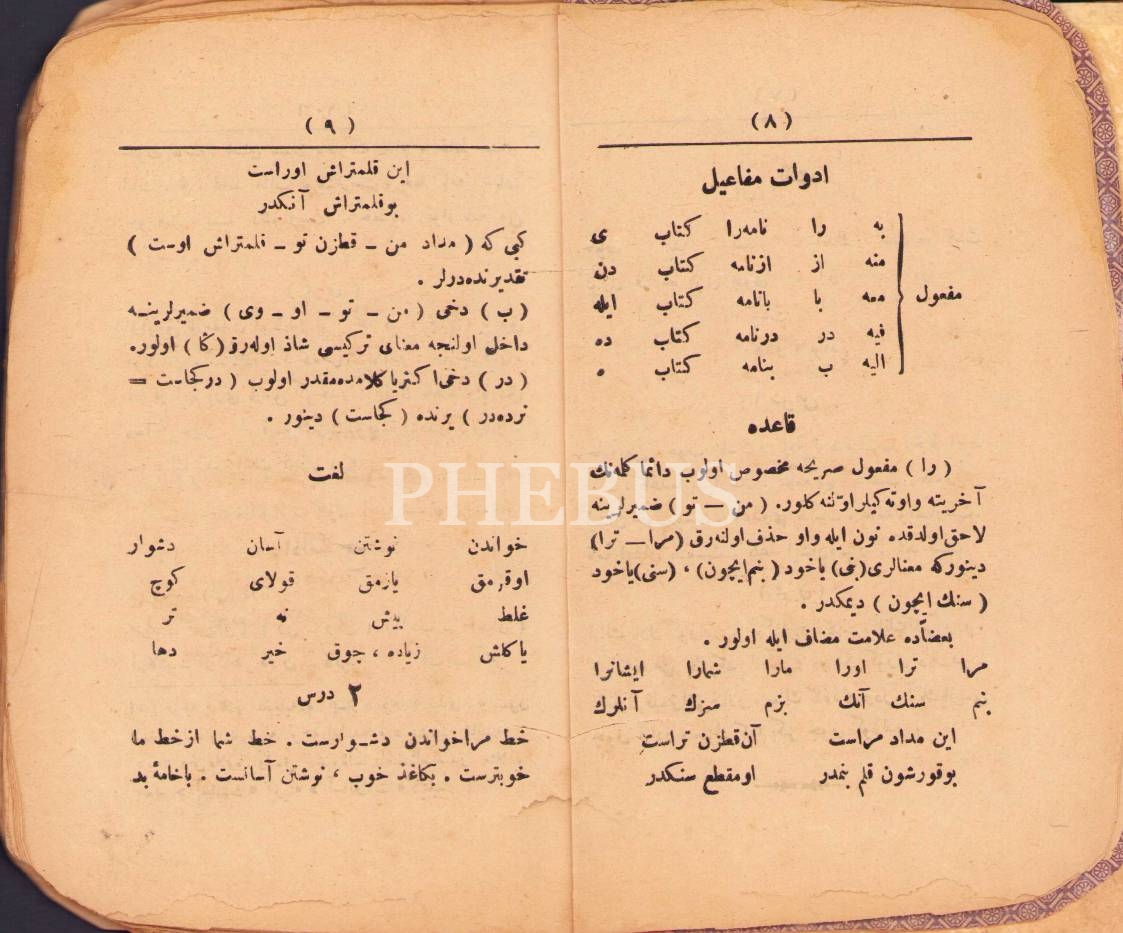 ( ٨ )
ادوات مفاعیل
به را نامه‌را کتاب ی
منه از ازنامه کتاب دن
معه با بانامه کتاب ایله
فیه در درنامه کتاب ده
الیه ب بنامه کتاب ه
مفعول
قاعده
( را ) مفعول صریحه مخصوص اولوب دائما کلمه‌نك
آخرینه واوته‌کیلر اوّلنه کلور. ( من — تو ) ضمیرلرینه
لاحق اولدقده نون ایله واو حذف اولنه‌رق (مرا — ترا)
دینورکه معنالری (بنی) یاخود ( بنم‌ایچون ) ، (سنی) یاخود
( سنك ایچون ) دیمکدر .
بعضاًده علامت مضاف ایله اولور .
مرا ترا اورا مارا شمارا ایشانرا
بنم سنك آنك بزم سزك آنلرك
این مداد مراست آن‌قطزن تراست
بوقورشون قلم بنمدر اومقطع سنکدر
( ٩ )
این قلمتراش اوراست
بوقلمتراش آنکدر
کبی که ( مداد من ـ قطزن تو ـ قلمتراش اوست )
تقدیرنده‌درلر .
( ب ) دخی ( من ـ تو ـ او ـ وی ) ضمیرلرینه
داخل اولنجه معنای ترکیسی شاذ اوله‌رق (کا) اولور.
( در ) دخی اکثریا کلامده مقدر اولوب ( درکجاست =
نرده‌در ) یرنده ( کجاست ) دینور .
لغت
خواندن نوشتن آسان دشوار
اوقومق یازمق قولای کوچ
غلط بیش نه تر
یاکلش زیاده ، چوق خیر دها
٢ درس
خط مراخواندن دشوارست . خط شما ازخط ما
خوبترست . بکاغذ خوب ، نوشتن آسانست . باخامهٔ بد
PHEBUS